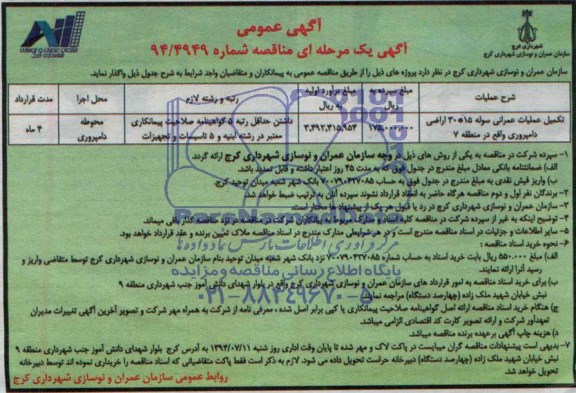 آگهی عمومی
آگهی یک مرحله ای مناقصه شماره ۹۴/۴۹۴۹
شهرداری کرج
سازمان عمران و نوسازی شهرداری کرج در نظر دارد پروژه های ذیل را از طریق مناقصه عمومی به پیمانکاران و متقاضیان واجد شرایط به شرح جدول ذیل واگذار نماید.
شرح عملیات | مبلغ سپرده به ریال | مبلغ برآورد اولیه به ریال | رتبه و رشته لازم | محل اجرا | مدت قرارداد
تکمیل عملیات عمرانی سوله ۱۵*۳۰ اراضی دامپروری واقع در منطقه ۷ | ۱۷۵,۰۰۰,۰۰۰ | ۳,۴۹۲,۴۱۵,۹۵۴ | داشتن حداقل رتبه ۵ گواهینامه صلاحیت پیمانکاری معتبر در رشته ابنیه و ۵ تاسیسات و تجهیزات | محوطه دامپروری | ۴ ماه
۱- سپرده شرکت در مناقصه به یکی از روش های ذیل در وجه سازمان عمران و نوسازی شهرداری کرج ارائه گردد.
الف) ضمانتنامه بانکی معادل مبلغ مندرج در جدول فوق که به مدت ۴۵ روز اعتبار داشته و قابل تمدید باشد.
ب) واریز فیش نقدی به مبلغ مندرج در جدول فوق به حساب ۷۰۰۷۹۰۴۳۷۰۸۵ بانک شهر شعبه میدان توحید کرج.
۲- برندگان نفر اول و دوم مناقصه هرگاه حاضر به انعقاد قرارداد نشوند سپرده آنان به ترتیب ضبط خواهد شد.
۳- سازمان عمران و نوسازی شهرداری کرج در رد یا قبول هر یک از پیشنهاد ها مختار است.
۴- توضیح اینکه به غیر از سپرده شرکت در مناقصه کلیه اسناد و مدارک مربوط به پیمانکاران شرکت در مناقصه نزد مناقصه گذار باقی میماند.
۵- سایر اطلاعات و جزئیات در اسناد مناقصه مندرج است و در هر شرایطی مدارک مندرج در اسناد مناقصه ملاک تعیین برنده و عقد قرارداد خواهد بود.
۶- نحوه خرید اسناد مناقصه :
الف) مبلغ ۵۵۰,۰۰۰ ریال بابت خرید اسناد به حساب شماره ۷۰۰۷۹۰۴۳۷۰۸۵ نزد بانک شهر شعبه میدان توحید بنام سازمان عمران و نوسازی شهرداری کرج توسط متقاضی واریز و
رسید آنرا ارائه نمایند.
ب) برای خرید اسناد مناقصه به امور قرارداد های سازمان عمران و نوسازی شهرداری کرج واقع در بلوار شهدای دانش آموز جنب شهرداری منطقه ۹
نبش خیابان شهید ملک زاده (چهارصد دستگاه) مراجعه نمایند.
ج) هنگام خرید اسناد مناقصه ارائه اصل گواهینامه صلاحیت پیمانکاری یا کپی برابر اصل شده ، نامه از شرکت به همراه مهر شرکت و تصویر آخرین آگهی تغییرات مدیران
تعهدآور شرکت و ارائه تصویر کارت کد اقتصادی الزامی میباشد.
د) هزینه چاپ آگهی برعهده برنده مناقصه میباشد.
۷- بدیهی است پیشنهادات مناقصه گران میبایست در پاکت لاک و مهر شده تا پایان وقت اداری روز شنبه ۱۳۹۴/۰۷/۱۱ به آدرس کرج بلوار شهدای دانش آموز جنب شهرداری منطقه ۹
نبش خیابان شهید ملک زاده (چهارصد دستگاه) دبیرخانه حراست تحویل داده می شود. لازم به ذکر است فقط پاکت متقاضیانی که اسناد مناقصه را خریداری نموده اند توسط دبیرخانه
تحویل خواهد شد.
روابط عمومی سازمان عمران و نوسازی شهرداری کرج
پایگاه اطلاع رسانی مناقصه و مزایده
۰۲۱-۸۸۳۴۹۶۷۰-۵